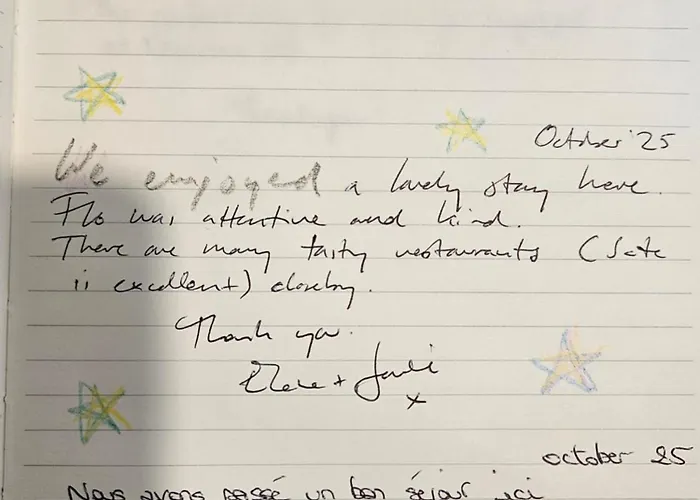 October '25
We enjoyed a lovely stay here.
Flo was attentive and kind.
There are many tasty restaurants (
is excellent) closeby.
Thank you.
+
x
october 25
Nous avons passé un bon séjour ici